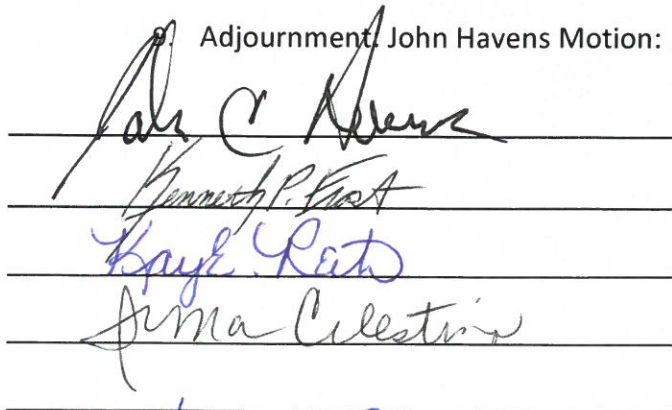 9. Adjournment: John Havens Motion:
John C Havens
Kenneth P. Frost
Kaye Rath
Irma Celestino